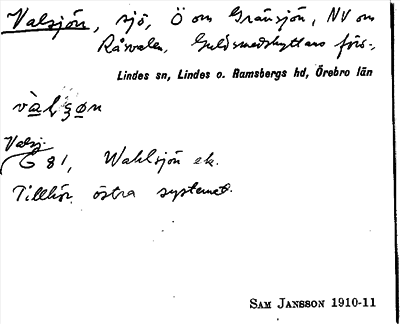 Valsjön, sjö, Ö om Gränsjön, NV om
Råsvalen, Guldsmedshyttans förs.,
Lindes sn, Lindes o. Ramsbergs hd, Örebro län
Valsj.
G 81, Wahlsjön ek.
Tillhör östra systemet.
SAM JANSSON 1910-11